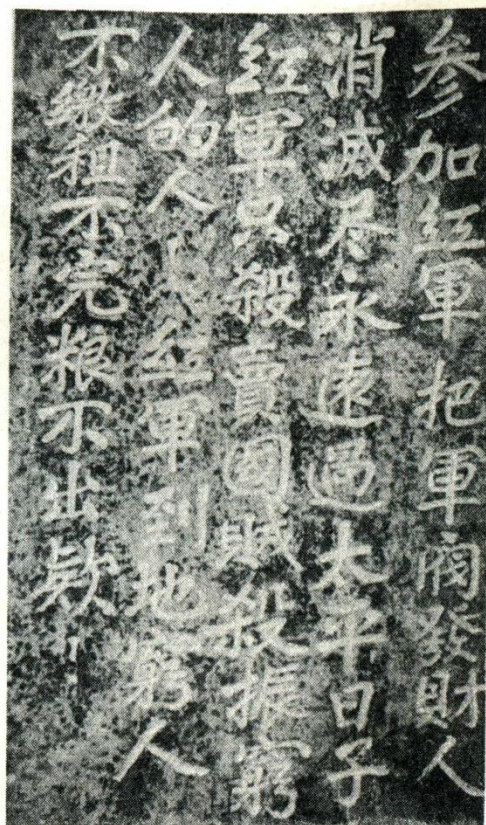 参加紅軍把軍阀發財人
消滅尽永遠過太平日子
紅軍只殺賣國賊殺振窮
人的人！紅軍到地窮人
不繳租不完粮不出款！